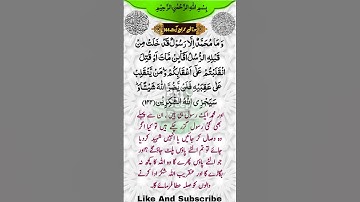 بِسْمِ اللهِ الرَّحْمٰنِ الرَّحِيْمِ
وَمَا مُحَمَّدٌ اِلَّا رَسُوْلٌ قَدْ خَلَتْ مِنْ
قَبْلِهِ الرُّسُلُ اَفَا۟ئِنْ مَّاتَ اَوْ قُتِلَ
انْقَلَبْتُمْ عَلٰٓى اَعْقَابِكُمْ وَمَنْ يَّنْقَلِبْ
عَلٰى عَقِبَيْهِ فَلَنْ يَّضُرَّ اللهَ شَيْـًٔا وَ
سَيَجْزِى اللهُ الشّٰكِرِيْنَ (۱۴۴)
اور محمد ایک رسول ہی ہیں، ان سے پہلے
بھی کئی رسول گزر چکے ہیں تو کیا اگر
وہ وصال کر جائیں یا انہیں شہید کردیا
جائے تو تم الٹے پاؤں پلٹ جاؤگے اور
جو الٹے پاؤں پھرے گا وہ اللہ کا کچھ نہ
بگاڑے گا اور عنقریب اللہ شکر ادا کرنے
والوں کو صلہ عطا فرمائے گا۔
Like And Subscribe